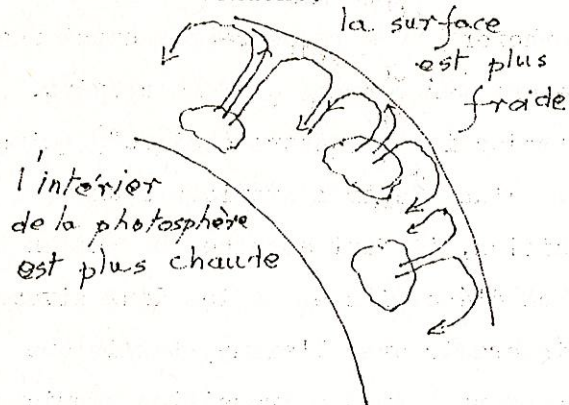 la surface
est plus
froide
l'intérier
de la photosphère
est plus chaude